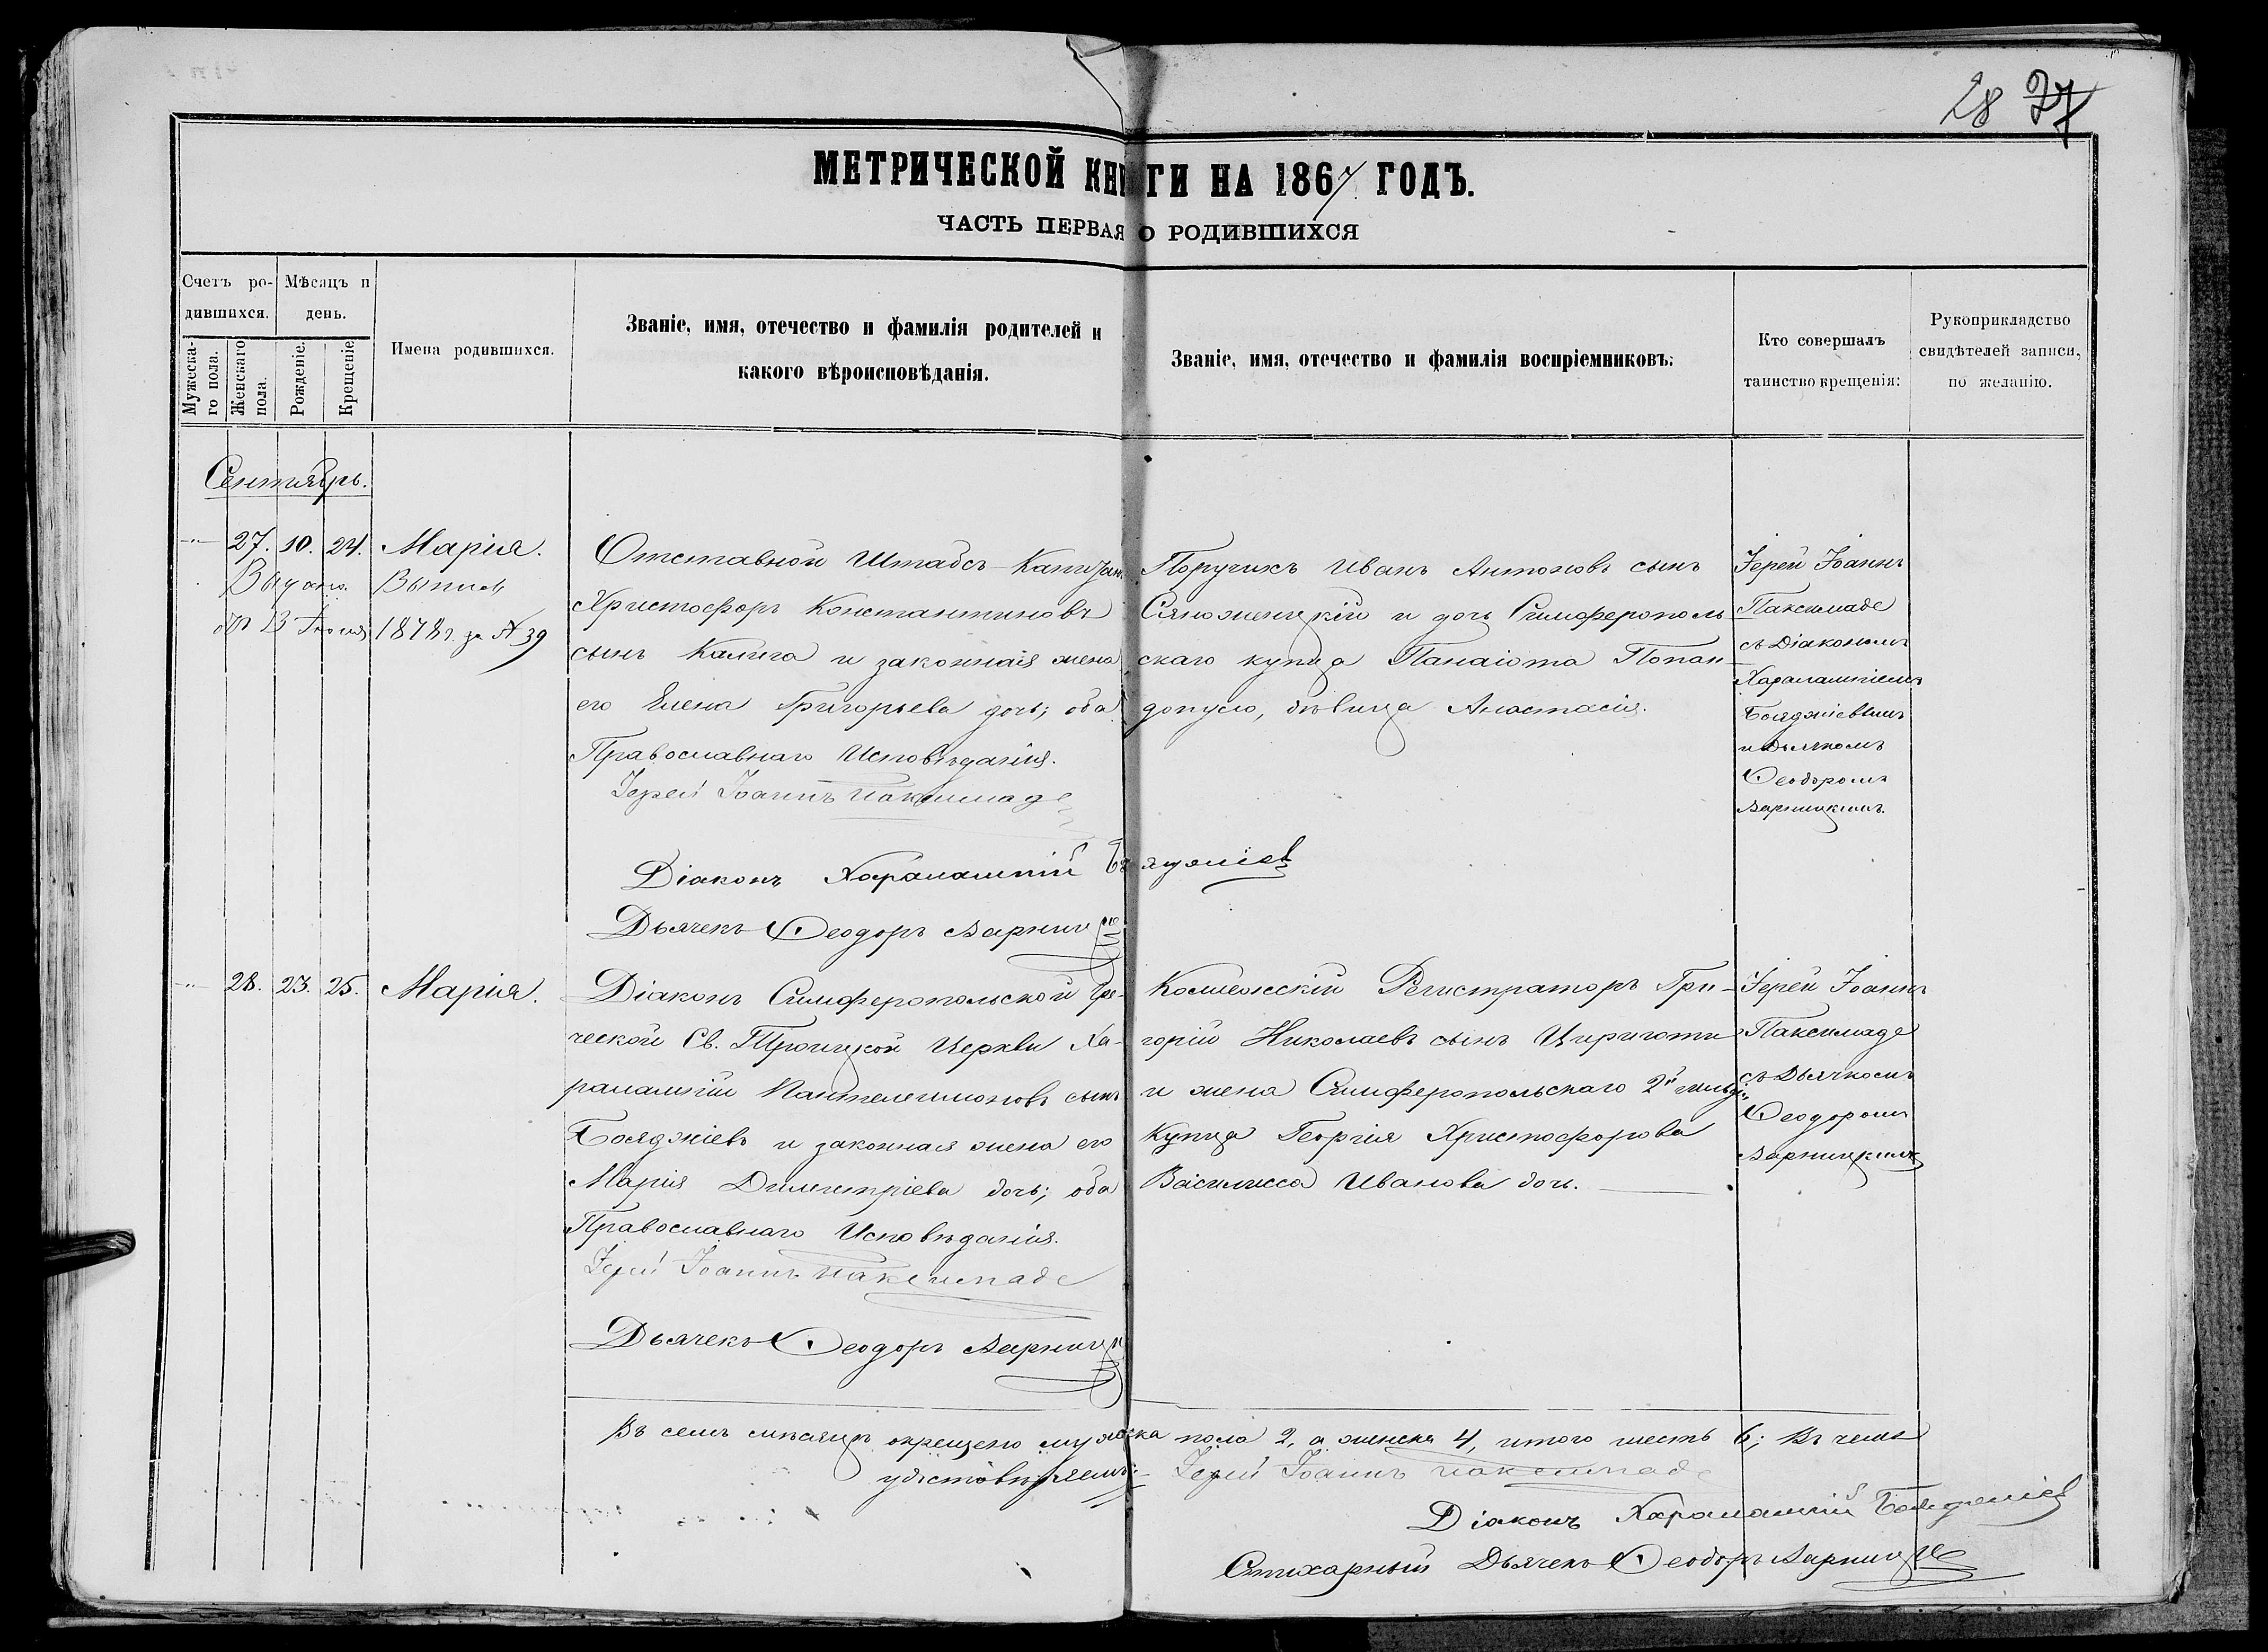 28 27
МЕТРИЧЕСКОЙ КНИГИ НА 1867 ГОДЪ.
ЧАСТЬ ПЕРВАЯ О РОДИВШИХСЯ
Счетъ ро-
дившихся.
Мѣсяцъ и
день.
Мужеска-
го пола.
Женскаго
пола.
Рожденіе.
Крещеніе
Имена родившихся.
Званіе, имя, отечество и фамилія родителей и
какого вѣроисповѣданія.
Званіе, имя, отечество и фамилія воспріемниковъ:
Кто совершалъ
таинство крещенія:
Рукоприкладство
свидѣтелей записи,
по желанію.
Сентябрь.
27. 10. 24. Марія.
Выдано. Выпись
1878 г. за № 39
Отставной Штабсъ-Капитан
Христофоръ Константиновъ
сынъ Калига и законная жена
его Елена Григорьева дочь; оба
Православнаго Исповѣданія.
Іерей Іоаннъ Паксимаде
Діаконъ Харалампій Бояджіев
Дьячекъ Ѳеодоръ Варниц
Поручикъ Иванъ Антоновъ сынъ
и дочь Симферополь
скаго купца Панаіота Попан-
допуло, дѣвица Анастасія.
Іерей Іоаннъ
Паксимаде
съ Діакономъ
Харалампіемъ
Бояджіевымъ
и Дьячкомъ
Ѳеодоромъ
Варницкимъ.
28. 23. 25. Марія.
Діаконъ Симферопольской Гре-
ческой Св. Троицкой Церкви Ха-
ралампій Пантелеимоновъ сынъ
Бояджіевъ и законная жена его
Марія Димитріева дочь; оба
Православнаго Исповѣданія.
Іерей Іоаннъ Паксимаде
Дьячекъ Ѳеодоръ Варниц
Коллежскій Регистраторъ Гри-
горій Николаевъ сынъ Цириготи
и жена Симферопольскаго 2й гильд:
Купца Георгія Христофорова
Василисса Иванова дочь.
Іерей Іоаннъ
Паксимаде
съ Дьячкомъ
Ѳеодоромъ
Варницкимъ
Въ семъ мѣсяцѣ окрещено мужеска пола 2, а женска 4, итого шесть 6; Въ чемъ
удостовѣряемъ:- Іерей Іоаннъ Паксимаде
Діаконъ Харалампій Бояджіев
Стихарный Дьячекъ Ѳеодоръ Варниц